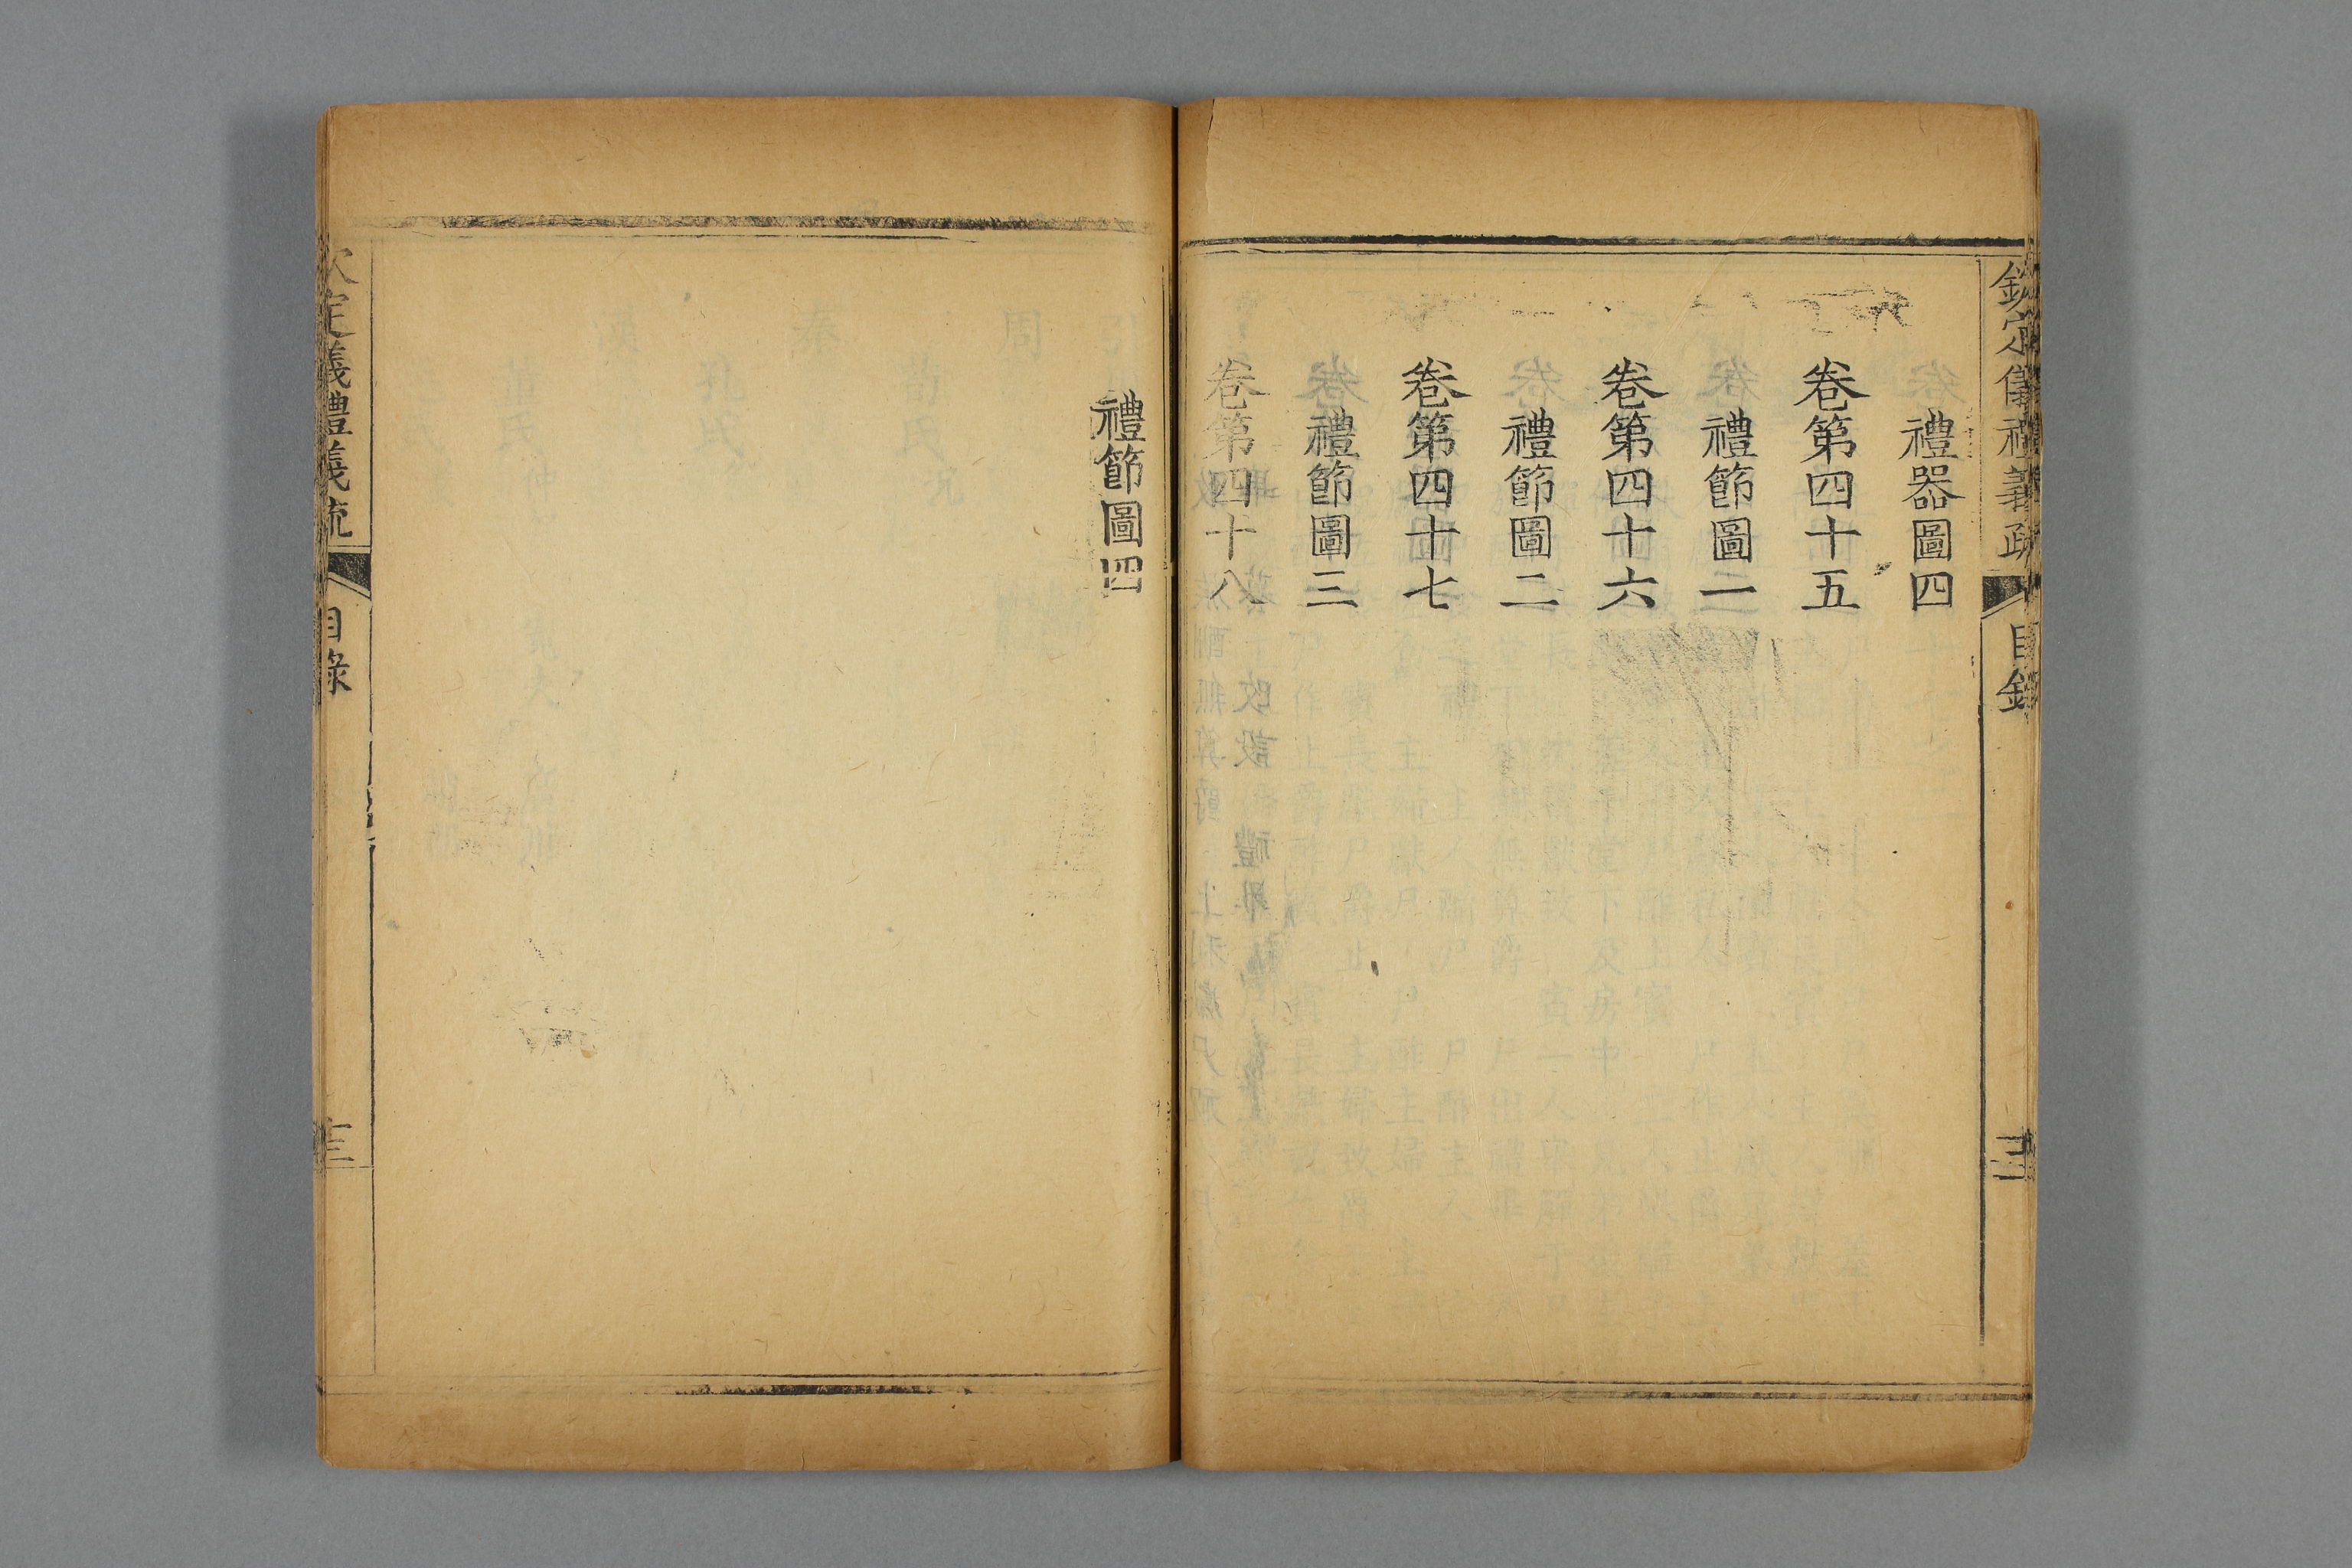 欽定儀禮義疏 目錄
禮器圖四
卷第四十五
禮節圖一
卷第四十六
禮節圖二
卷第四十七
禮節圖三
卷第四十八
禮節圖四
欽定儀禮義疏 目錄